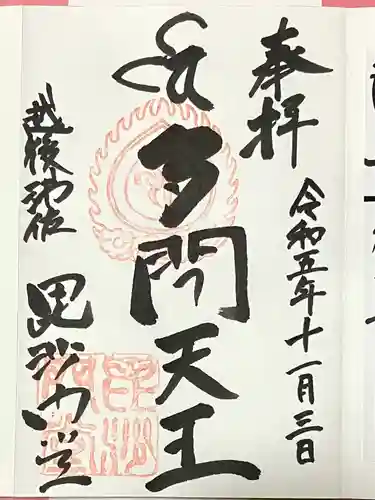 奉拝
令和五年十一月三日
多聞天王
越後浦佐
毘沙門堂